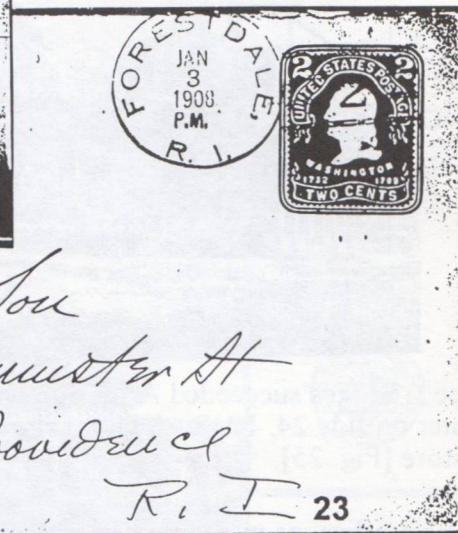 FORESTDALE,
JAN
3
1908
P.M.
R. I.
2 2
UNITED STATES POSTAGE
2
WASHINGTON
1732 1799
TWO CENTS
Son
minster St
Providence
R. I 23